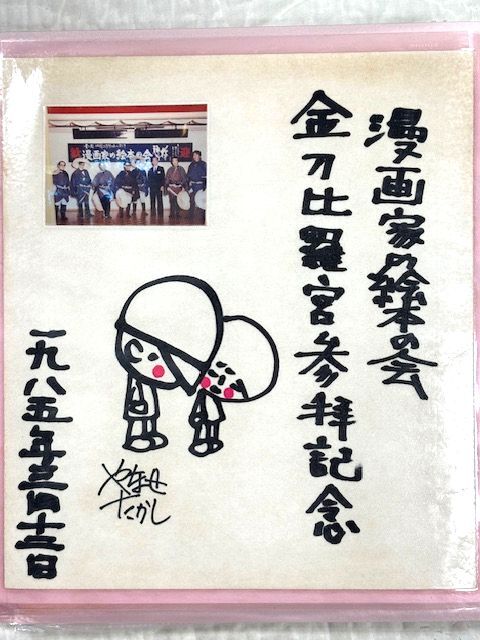 漫画家の絵本の会
金刀比羅宮参拝記念
漫画家の絵本の会
やなせ
たかし
一九八五年三月十三日